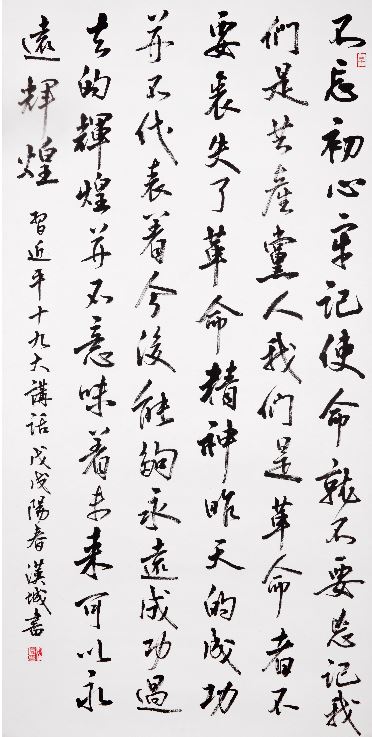 不忘初心牢記使命就不要忘記我
們是共產黨人我們是革命者不
要丧失了革命精神昨天的成功
并不代表着今後能夠永遠成功過
去的輝煌并不意味着未來可以永
遠輝煌
習近平十九大講話 戊戌陽春漢城書